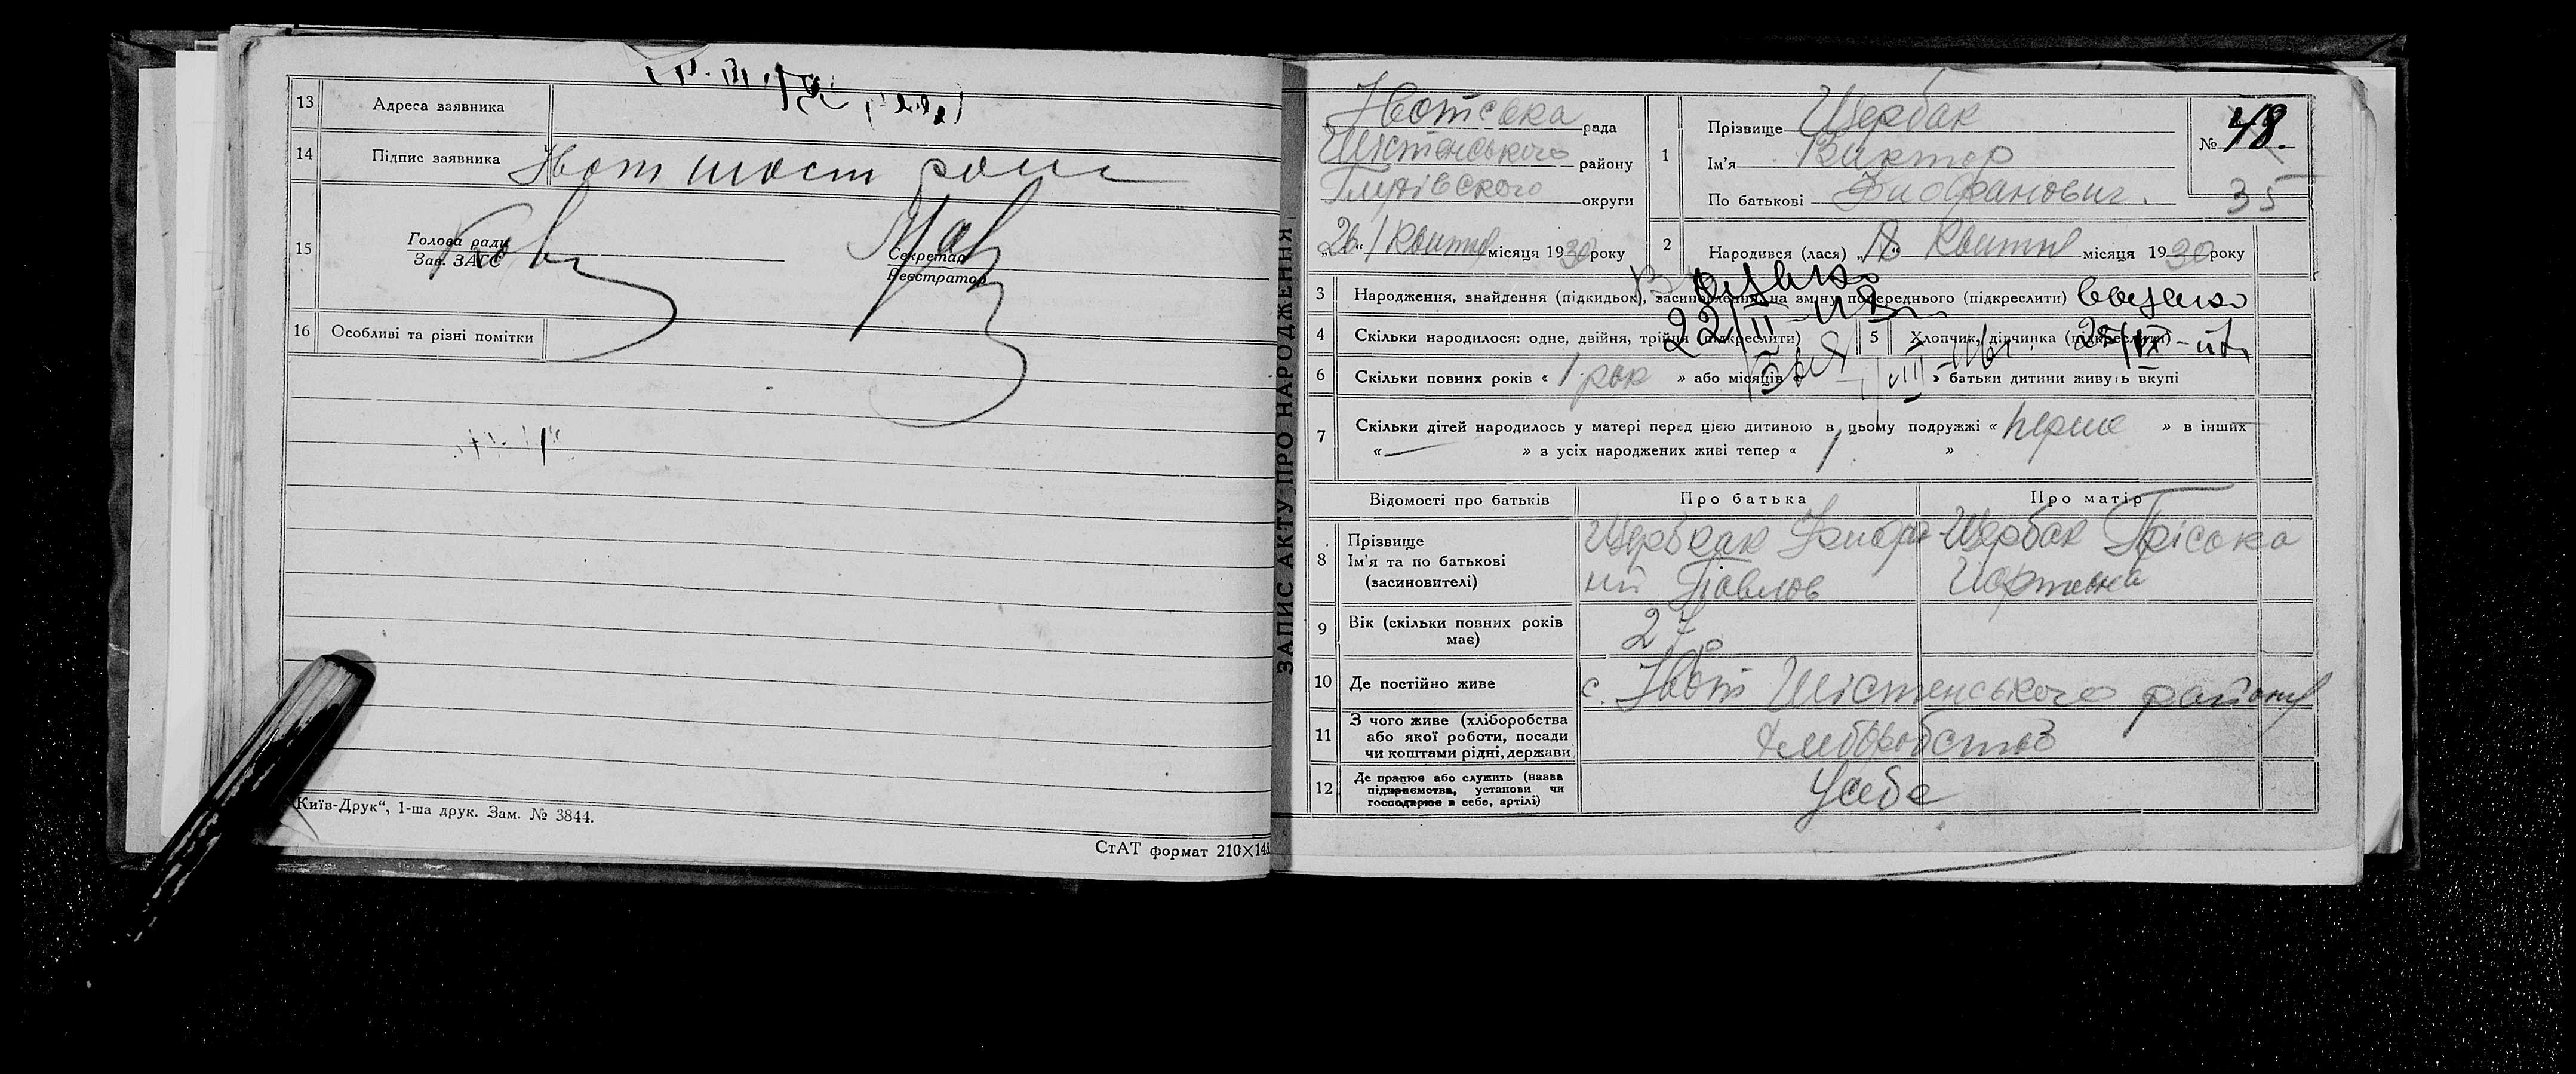 13 Адреса заявника
14 Підпис заявника
15 Голова ради
Зав. ЗАГС
Секретар
Реєстратор
16 Особливі та різні помітки
„Київ-Друк“, 1-ша друк. Зам. № 3844.
СтАТ формат 210×148
ЗАПИС АКТУ ПРО НАРОДЖЕННЯ
Івотська рада
Шістенського району
Глухівского округи
„26“ Квитня місяця 1930 року
1 Прізвище Щербак
Ім'я Виктор
По батькові
№ 48.
35
2 Народився (лася) „18“ Квитня місяця 1930 року
3 Народження, знайдення (підкидьок), засиновлення, на зміну попереднього (підкреслити)
4 Скільки народилося: одне, двійня, трійця (підкреслити)
5 Хлопчик, дівчинка (підкреслити)
6 Скільки повних років « 1 рок » або місяців « » батьки дитини живуть вкупі
7 Скільки дітей народилось у матері перед цією дитиною в цьому подружжі « перше » в інших
« — » з усіх народжених живі тепер « 1 »
Відомості про батьків Про батька Про матір
8 Прізвище
Ім'я та по батькові
(засиновителі)
Щербак
Павлов
Щербак
9 Вік (скільки повних років
має)
27
10 Де постійно живе с. Івот Шістенського району
11 З чого живе (хліборобства
або якої роботи, посади
чи коштами рідні, держави
хлиборобство
12 Де працює або служить (назва
підприємства, установи чи
господарює в себе, артілі)
усебе